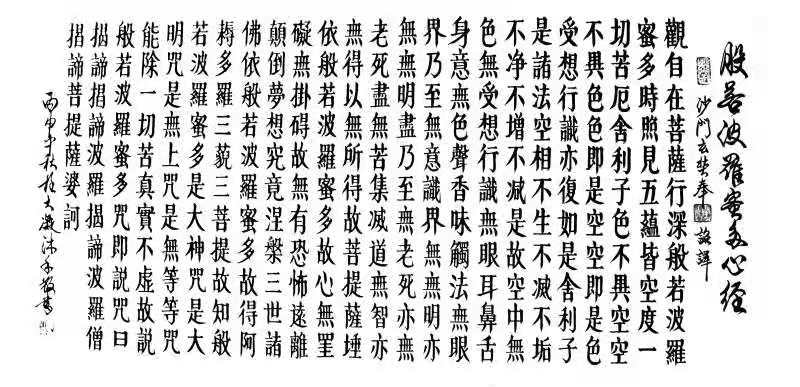 般若波羅蜜多心經
沙門玄奘奉詔譯
觀自在菩薩行深般若波羅
蜜多時照見五蘊皆空度一
切苦厄舍利子色不異空空
不異色色即是空空即是色
受想行識亦復如是舍利子
是諸法空相不生不减不垢
不净不增不减是故空中無
色無受想行識無眼耳鼻舌
身意無色聲香味觸法無眼
界乃至無意識界無無明亦
無無明盡乃至無老死亦無
老死盡無苦集减道無智亦
無得以無所得故菩提薩埵
依般若波羅蜜多故心無罣
礙無掛碍故無有恐怖遠離
顛倒夢想究竟涅槃三世諸
佛依般若波羅蜜多故得阿
耨多羅三藐三菩提故知般
若波羅蜜多是大神咒是大
明咒是無上咒是無等等咒
能除一切苦真實不虛故説
般若波羅蜜多咒即説咒曰
揭諦揭諦波羅揭諦波羅僧
揭諦菩提薩婆訶
丙申中秋沐手敬書